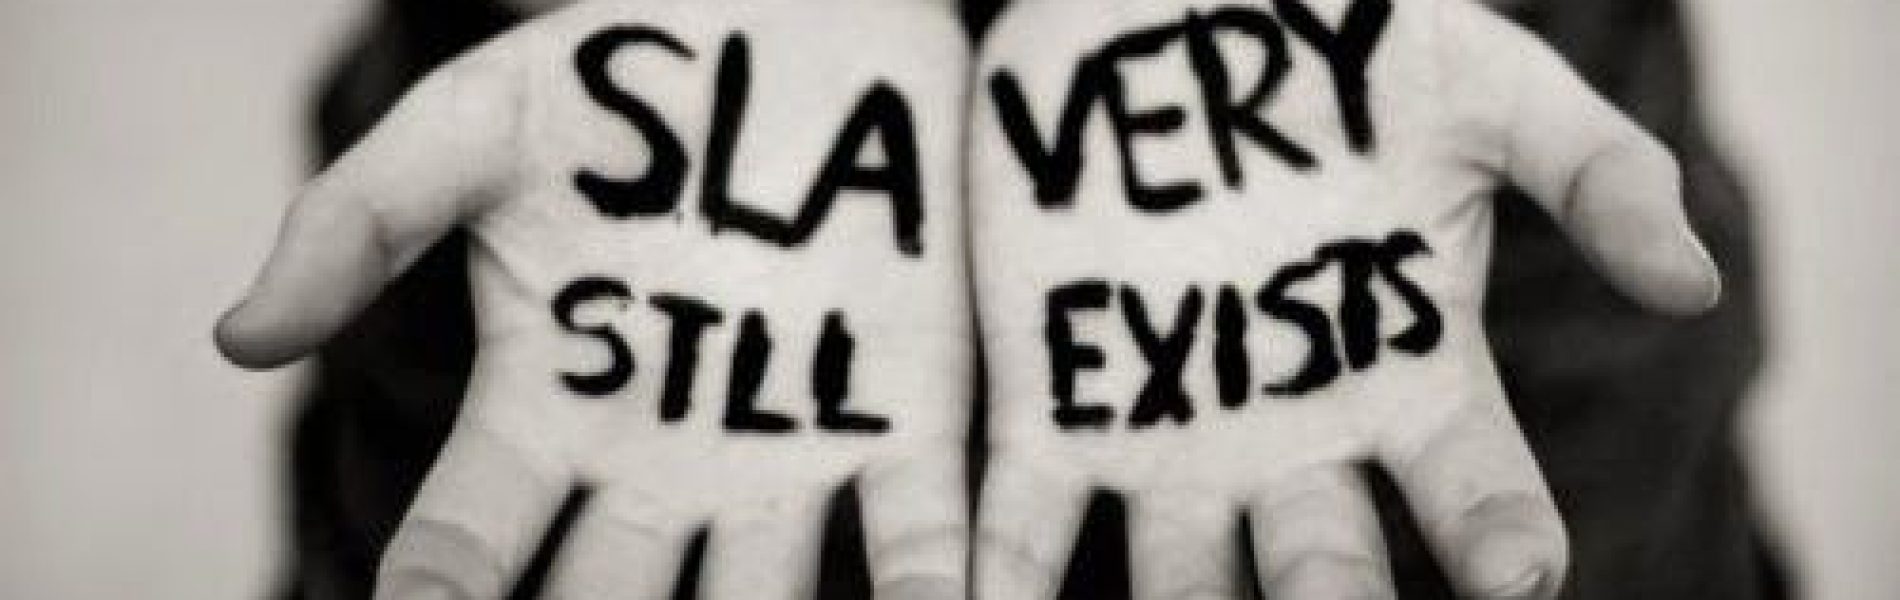 SLAVERY
STLL EXISTS